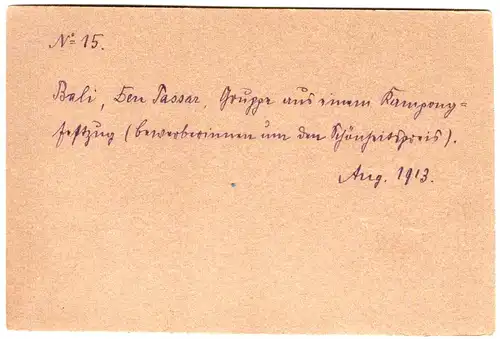 No 15.
Bali, Den Passar, Gruppe aus einem Kampong-
festzug (Bewerberinnen um den Schönheitspreis).
Aug. 1913.